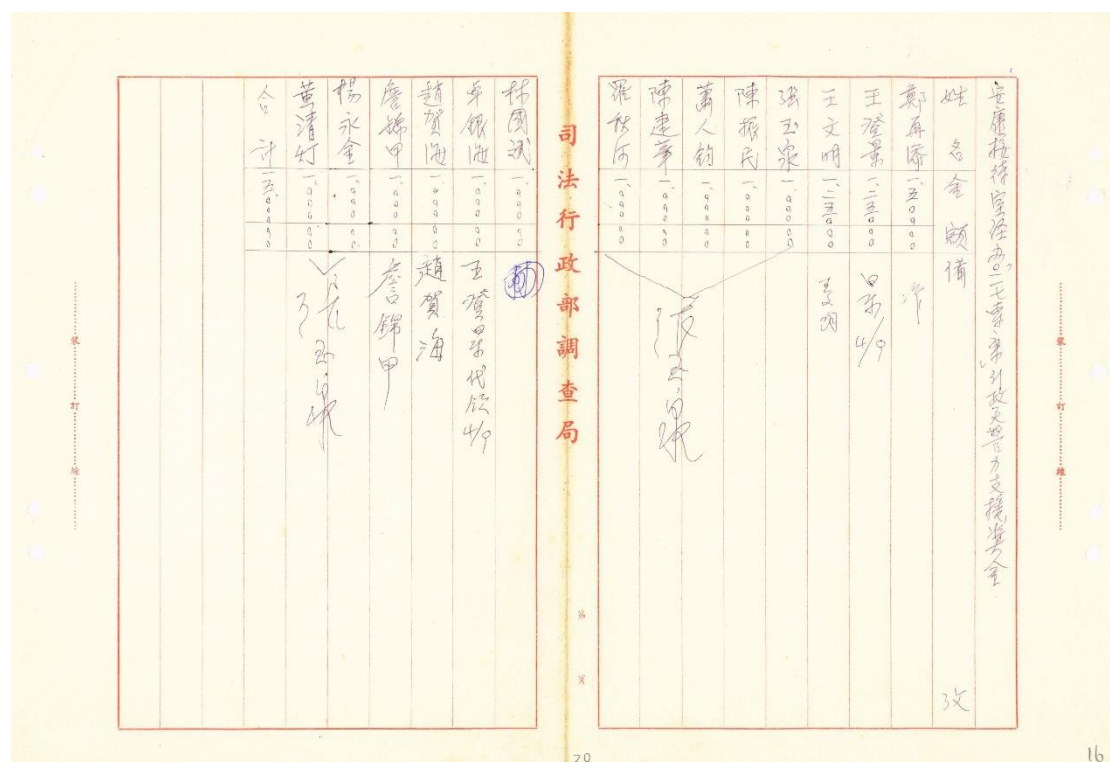 安康接待室涉「五〇二七專案」引政天警力支援獎金
姓名 金額 備 攷
鄭再添 一、五〇〇〇〇
王登景 一、二五〇〇〇 4/9
王文明 一、二五〇〇〇
張玉泉 一、〇〇〇〇〇
陳振民 一、〇〇〇〇〇
蕭人鈞 一、〇〇〇〇〇
陳建華 一、〇〇〇〇〇
羅秋河 一、〇〇〇〇〇
張玉泉
第 頁
司法行政部調查局
林國斌 一、〇〇〇〇〇
卓銀海 一、〇〇〇〇〇 王登景代領4/9
趙賀海 一、〇〇〇〇〇 趙賀海
詹錦甲 一、〇〇〇〇〇 詹錦甲
楊永金 一、〇〇〇〇〇
黃清灯 一、〇〇〇〇〇
張玉泉
合計 一五、〇〇〇〇〇
裝 訂 線
裝 訂 線
20
16